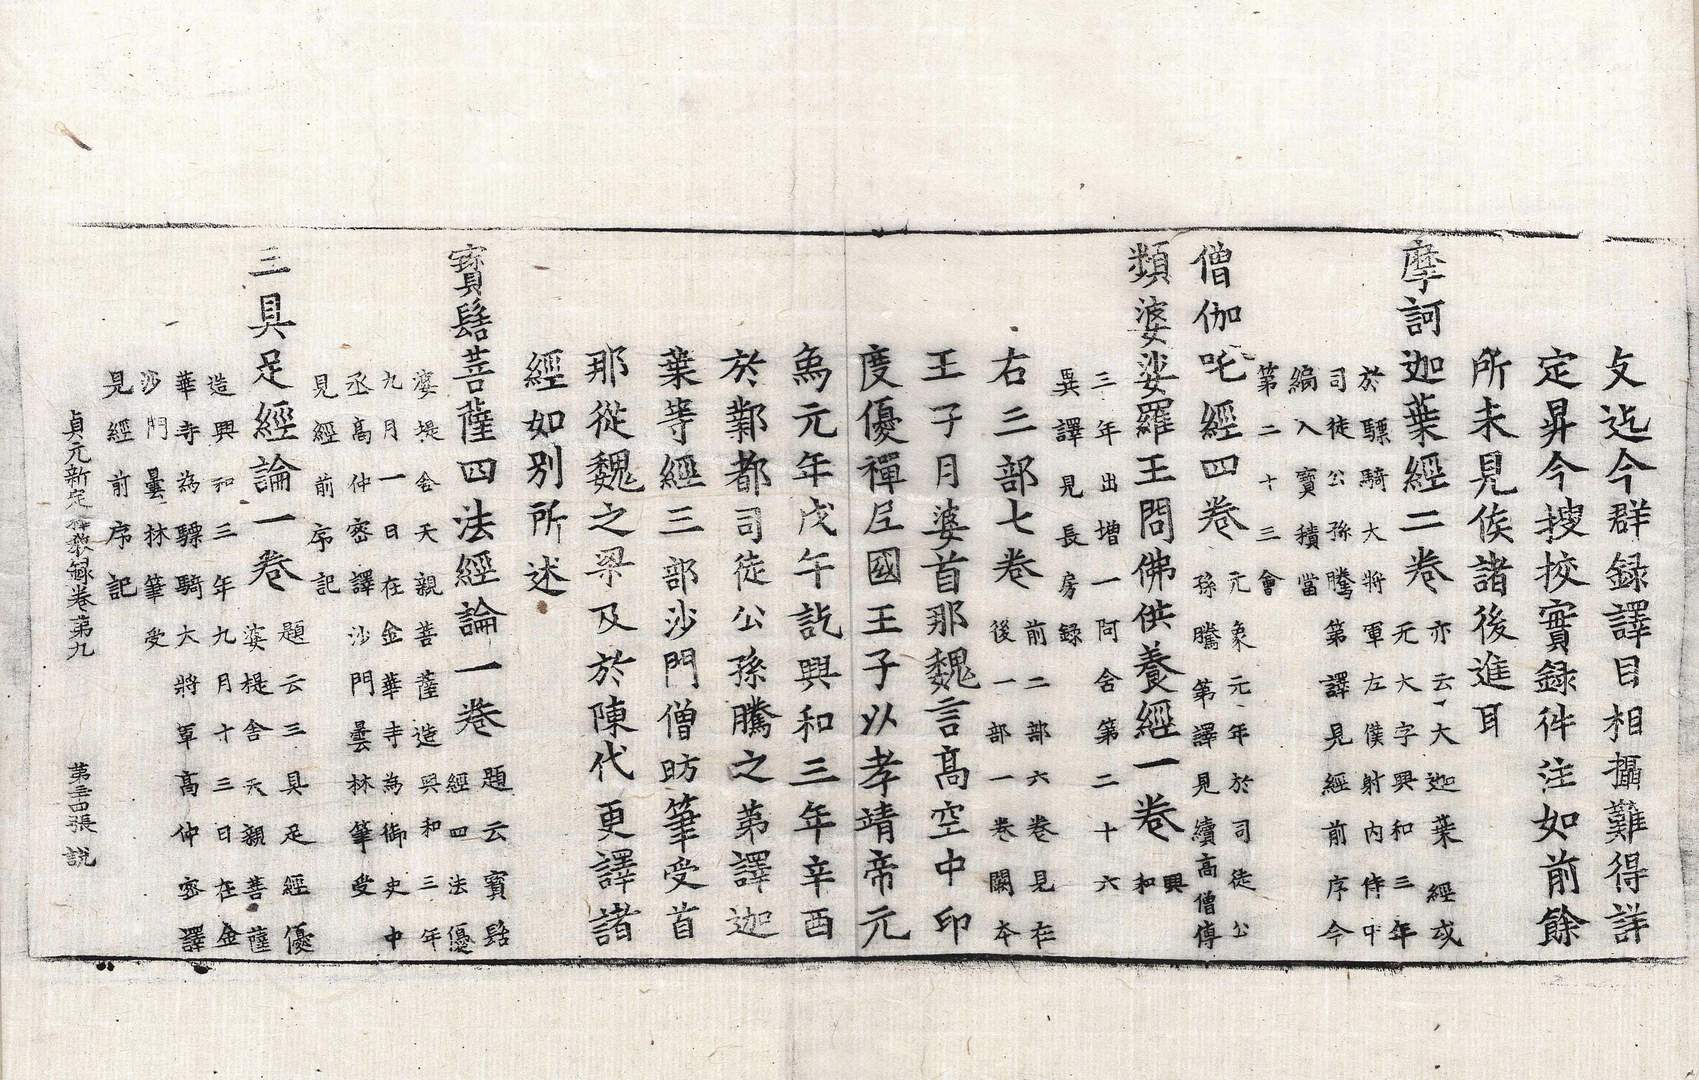 攵迄今群録譯目相攝難得詳
定昇今捜挍實録件注如前餘
所未見俟諸後進耳
摩訶迦葉經二卷亦云大迦葉經或
元大字興和三年
於驃騎大將軍左僕射內侍中
司徒公孫騰第譯見經前序今
編入寶積當
第二十三會
僧伽吒經四卷元象元年於司徒公
孫騰第譯見續高僧傳
頻婆娑羅王問佛供養經一卷興
和
三年出增一阿含第二十六
異譯見長房録
右三部七卷前二部六卷見在
後一部一卷闕本
王子月婆首那魏言高空中印
度優禪尼國王子以孝靖帝元
象元年戊午訖興和三年辛酉
於鄴都司徒公孫騰之第譯迦
葉等經三部沙門僧昉筆受首
那從魏之梁及於陳代更譯諸
經如別所述
寶髻菩薩四法經論一卷題云寶髻
經四法優
婆提舍天親菩薩造興和三年
九月一日在金華寺為御史中
丞高仲密譯沙門曇林筆受
見經前序記
三具足經論一卷題云三具足經優
婆提舍天親菩薩
造興和三年九月十三日在金
華寺為驃騎大將軍高仲密譯
沙門曇林筆受
見經前序記
貞元新定釋教録卷第九 第三四張 說